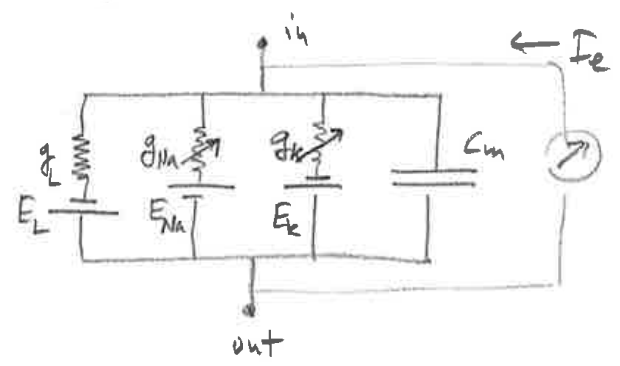 in
Ie
gL
gNa
gK
Cm
EL
ENa
Ek
out